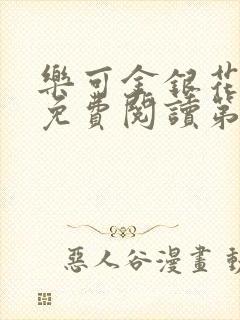 樂可金銀花
免費閱讀第
惡人谷漫畫 動